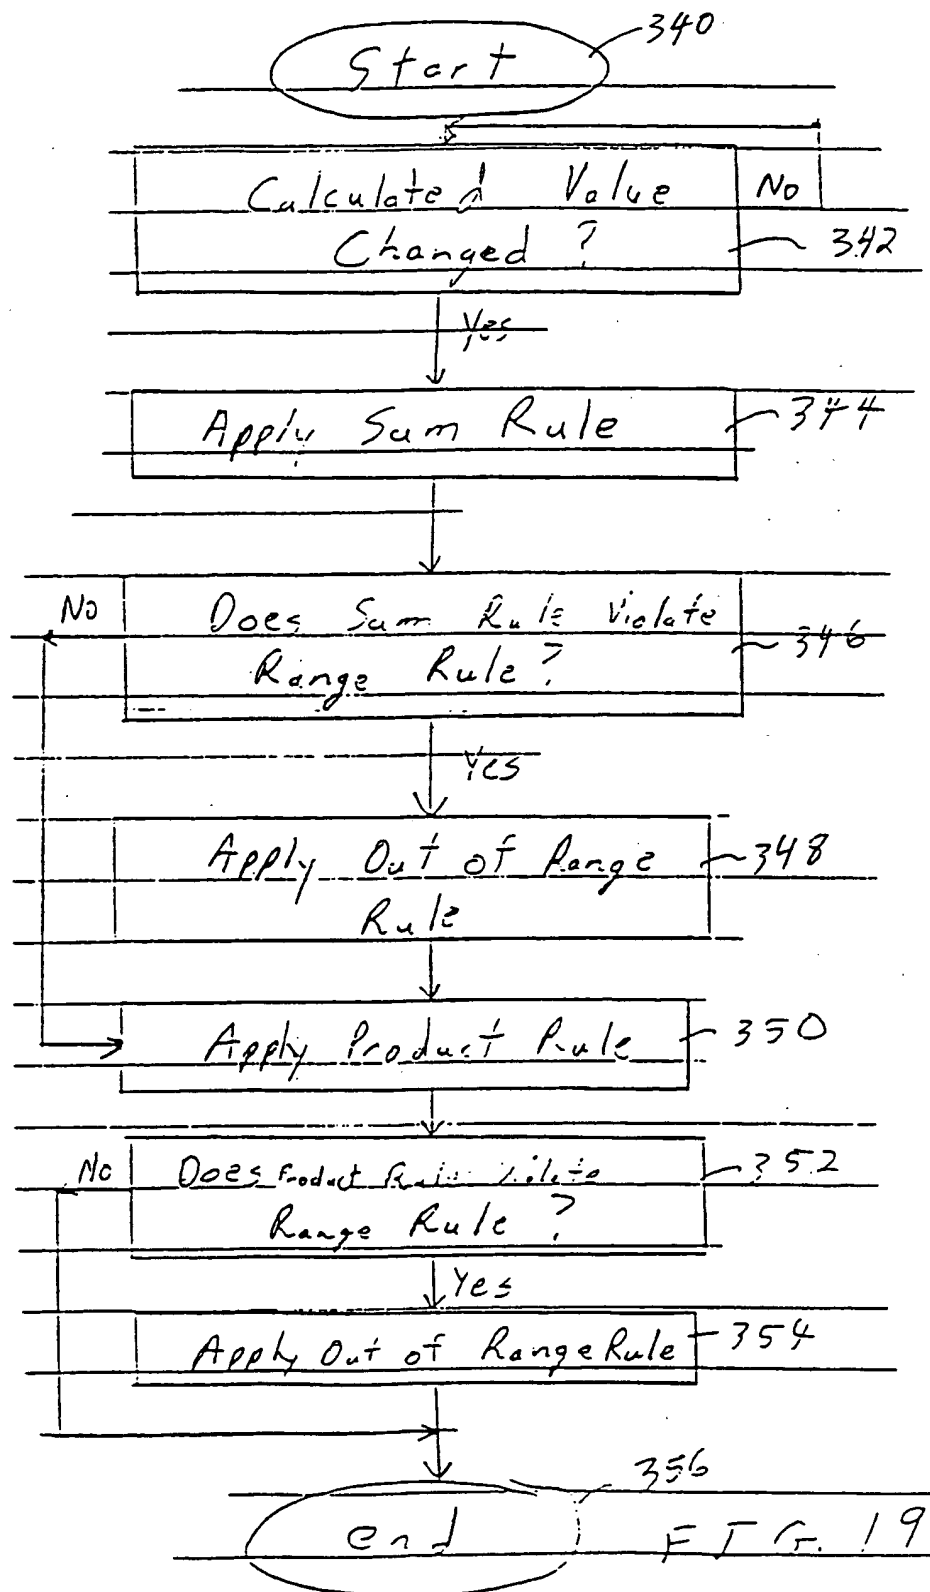 Start
340
Calculated Value
Changed ?
No
342
Yes
Apply Sum Rule
344
No
Does Sum Rule Violate
Range Rule ?
346
Yes
Apply Out of Range
Rule
348
Apply Product Rule
350
No
Does Product Rule Violate
Range Rule ?
352
Yes
Apply Out of Range Rule
354
end
356
FIG. 19